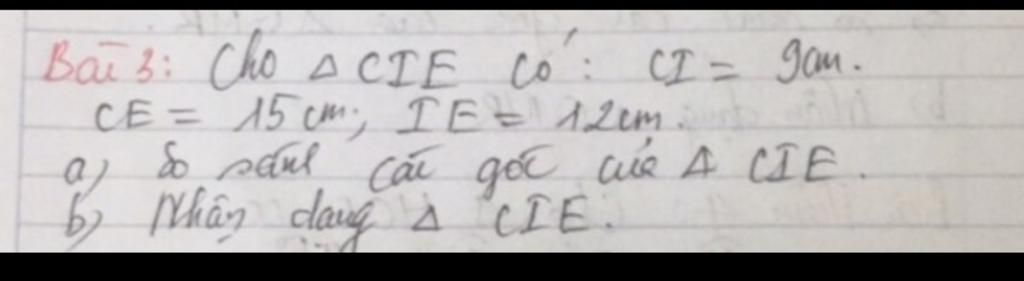 Bài 3: Cho Δ CIE có: CI = 9cm.
CE = 15 cm; IE = 12cm.
a) So sánh các góc của Δ CIE.
b) Nhận dạng Δ CIE.